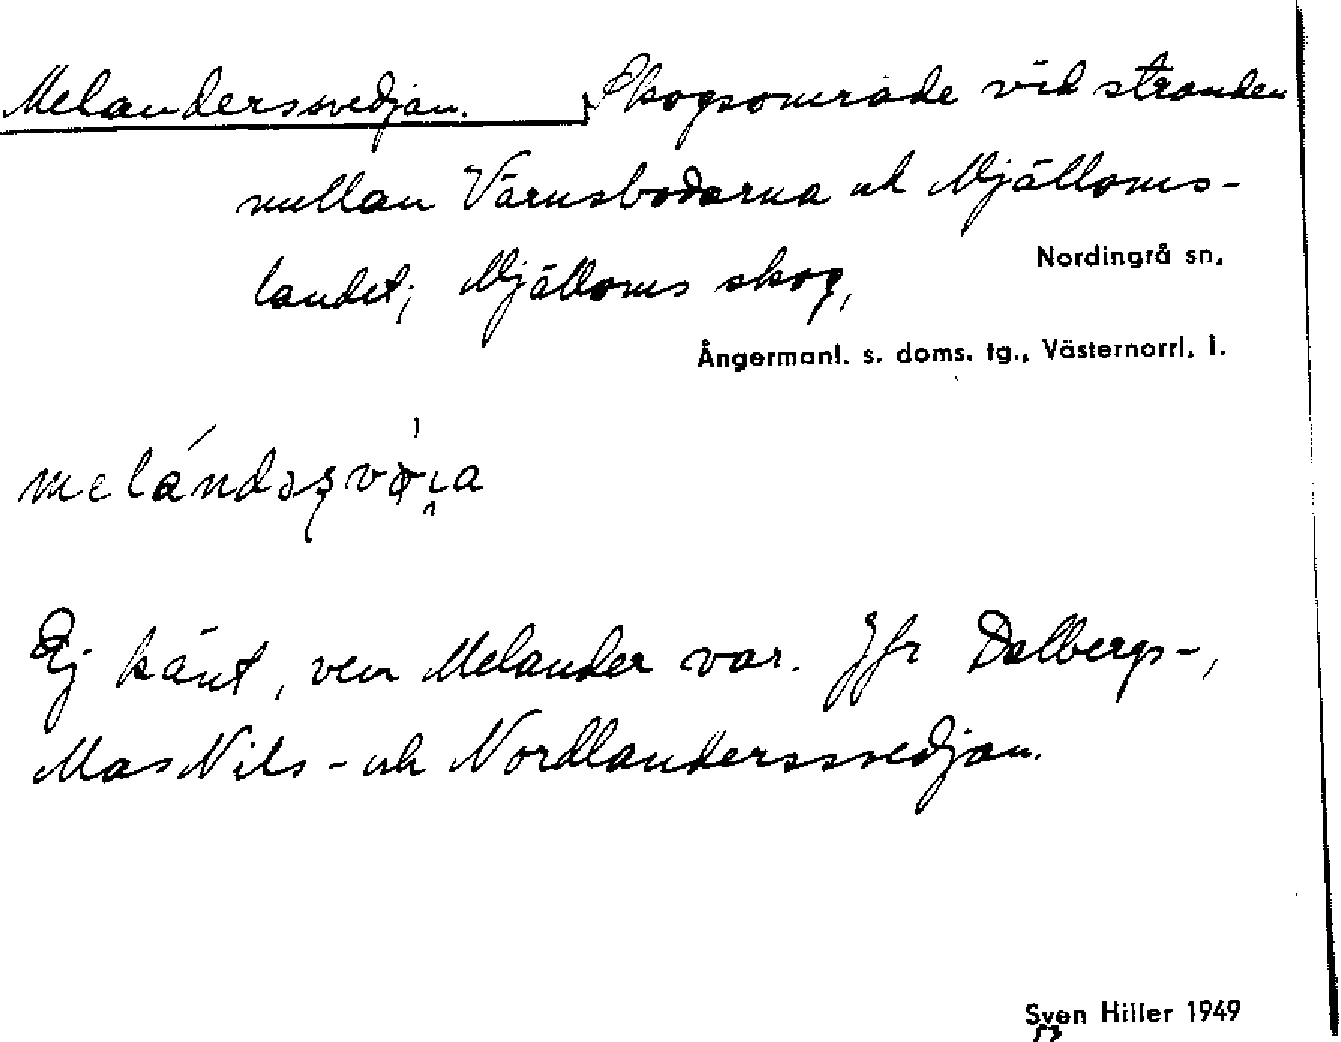 Melanderssvedjan. Skogsområde vid stranden
mellan Värnsbodarna och Mjälloms-
landet; Mjälloms skog,
Nordingrå sn,
Ångermanl. s. doms. tg., Västernorrl. l.
Ej känt, vem Melander var. Jfr Dalbergs-,
MasNils- och Nordlanderssvedjan.
Sven Hiller 1949
53